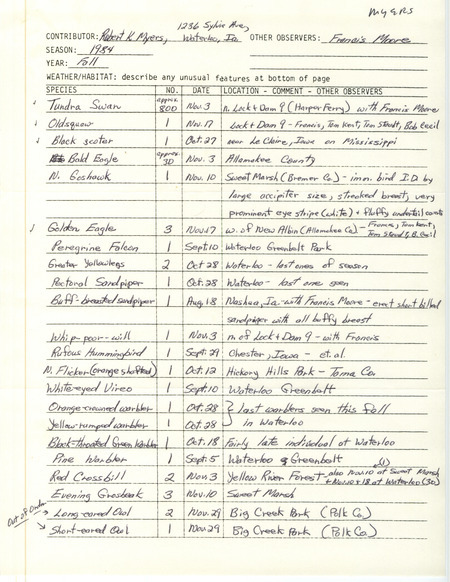 Myers
1236 Sylvia Ave,
CONTRIBUTOR: Robert K Myers, Waterloo, Ia. OTHER OBSERVERS: Francis Moore
SEASON: 1984
YEAR: Fall
WEATHER/HABITAT: describe any unusual features at bottom of page
SPECIES NO. DATE LOCATION - COMMENT - OTHER OBSERVERS
Tundra Swan approx. 800 Nov. 3 n. Lock & Dam 9 (Harper Ferry) with Francis Moore
Oldsquaw 1 Nov. 17 Lock & Dam 9 - Francis, Tom Kent, Tom Staudt, Bob Cecil
Black scoter 1 Oct. 27 near Le Claire, Iowa on Mississippi
Bald Eagle approx. 30 Nov. 3 Allamakee County
N. Goshawk 1 Nov. 10 Sweet Marsh (Bremer Co.) - imm. bird I.D. by
large accipiter size, streaked breast, very
prominent eye stripe (white) & fluffy undertail coverts
Golden Eagle 3 Nov 17 w. of New Albin (Allamakee Co.) - Francis, Tom Kent, Tom Staudt, B. Cecil
Peregrine Falcon 1 Sept 10 Waterloo Greenbelt Park
Greater Yellowlegs 2 Oct 28 Waterloo - last ones of season
Pectoral Sandpiper 1 Oct. 28 Waterloo - last one seen
Buff-breasted sandpiper 1 Aug. 18 Nashua, Ia. - with Francis Moore - erect short billed
sandpiper with all buffy breast
Whip-poor-will 1 Nov. 3 n. of Lock & Dam 9 - with Francis
Rufous Hummingbird 1 Sept. 29 Chester, Iowa - et. al.
N. Flicker (orange shafted) 1 Oct 12 Hickory Hills Park - Tama Co.
White-eyed Vireo 1 Sept. 10 Waterloo Greenbelt
Orange-crowned warbler 1 Oct. 28 } last warblers seen this fall
Yellow-rumped warbler 1 Oct. 28 in Waterloo
Black-throated Green Warbler 1 Oct. 18 Fairly late individual at Waterloo
Pine Warbler 1 Sept. 5 Waterloo Greenbelt
Red Crossbill 2 Nov. 3 Yellow River Forest - also Nov. 10 at Sweet Marsh (1) & Nov. 10 & 18 at Waterloo (30)
Evening Grosbeak 3 Nov. 10 Sweet Marsh
Out of Order
Long-eared Owl 2 Nov. 29 Big Creek Park (Polk Co.)
Short-eared Owl 1 Nov 29 Big Creek Park (Polk Co.)